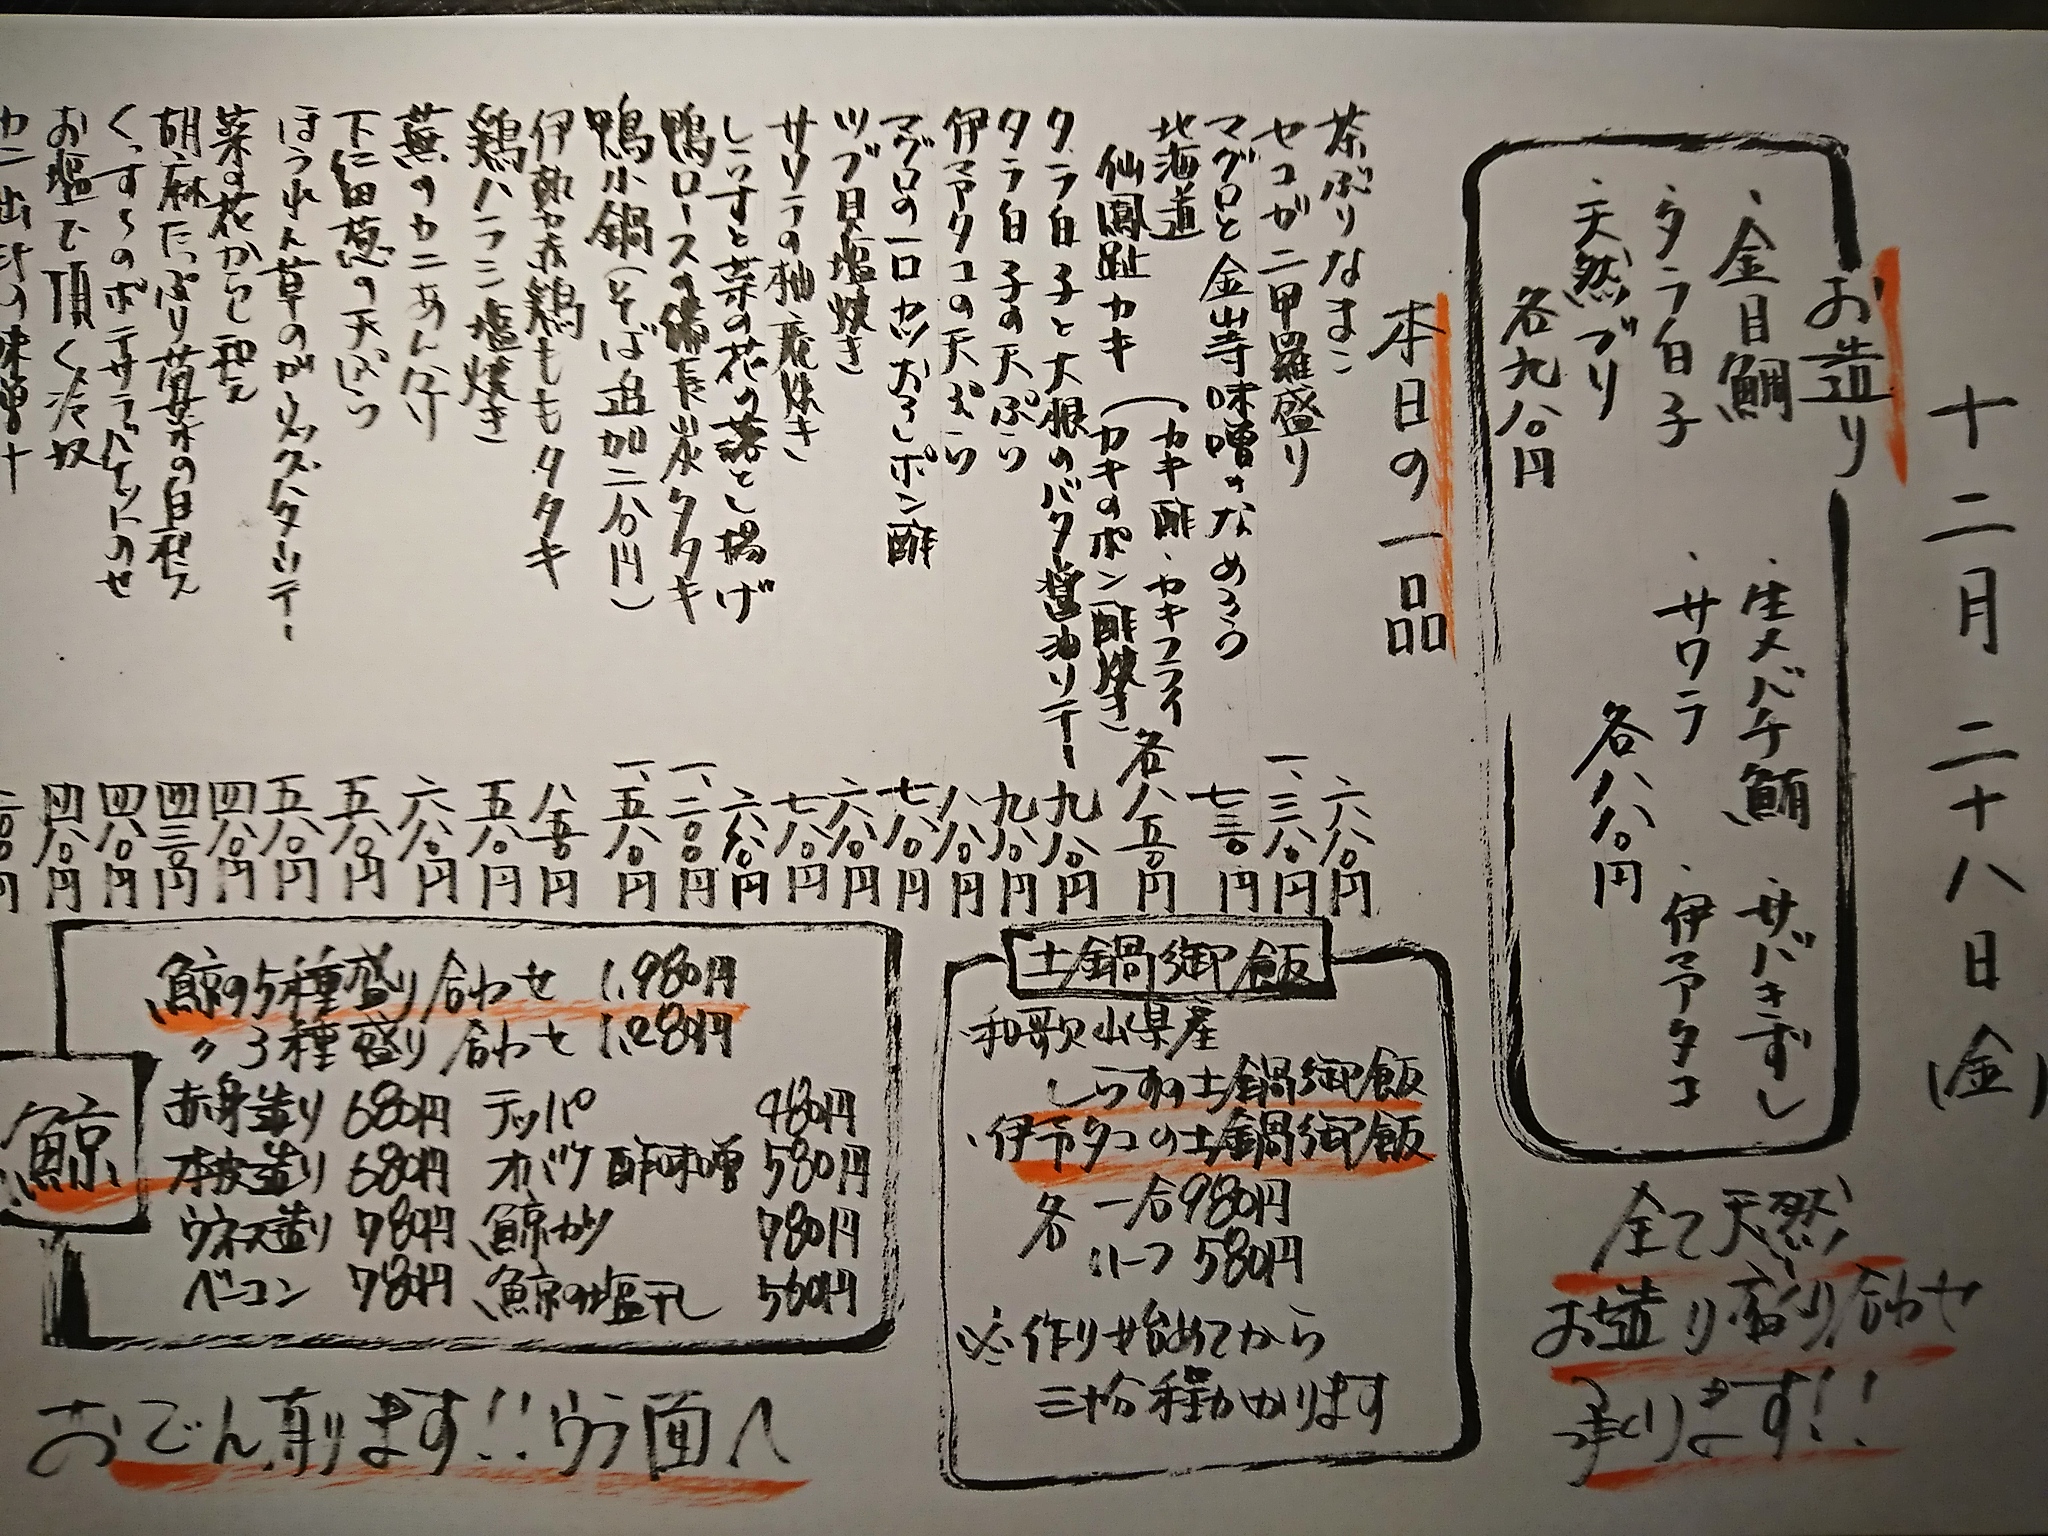 十二月二十八日(金)
お造り
・金目鯛
・タラ白子
・天然ブリ
各九八〇円
・生メバチ鮪
・サバきずし
・サワラ
・伊予タコ
各八八〇円
全て天然
お造り盛り合わせ
承ります!!
本日の一品
茶ぶりなまこ 六八〇円
セコガニ甲羅盛り 一、三八〇円
マグロと金山寺味噌のなめろう 七三〇円
北海道
仙鳳趾カキ(カキ酢・カキフライ
カキのポン酢焼き) 各八五〇円
タラ白子と大根のバター醤油ソテー 九八〇円
タラ白子の天ぷら 九八〇円
伊予タコの天ぷら 八八〇円
マグロの一口カツおろしポン酢 七八〇円
ツブ貝塩焼き 六八〇円
サワラの柚庵焼き 七八〇円
しらすと菜の花の落とし揚げ 六八〇円
鴨ロースの備長炭タタキ 一、二〇〇円
鴨小鍋(そば追加二八〇円) 一、五八〇円
伊勢赤鶏ももタタキ 八五〇円
鶏ハラミ塩焼き 五八〇円
蕪のカニあん炊 六八〇円
下仁田葱の天ぷら 五八〇円
ほうれん草のガーリックバターソテー 五八〇円
菜の花からし和え 四八〇円
胡麻たっぷり菊菜の白和え 四三〇円
くっするのポテサラバケットのせ 四八〇円
お塩で頂く冷奴 四八〇円
カニ出汁の味噌汁
土鍋御飯
・和歌山県産
しらすの土鍋御飯
・伊予タコの土鍋御飯
各 一合980円
ハーフ580円
※作り始めてから
三十分程かかります
鯨
鯨の5種盛り合わせ 1,980円
〃3種盛り合わせ 1,280円
赤身造り 680円 テッパ 980円
本皮造り 680円 オバケ酢味噌 580円
ウネス造り 780円 鯨カツ 780円
ベーコン 780円 鯨の塩干し 560円
おでん有ります!!ウラ面へ